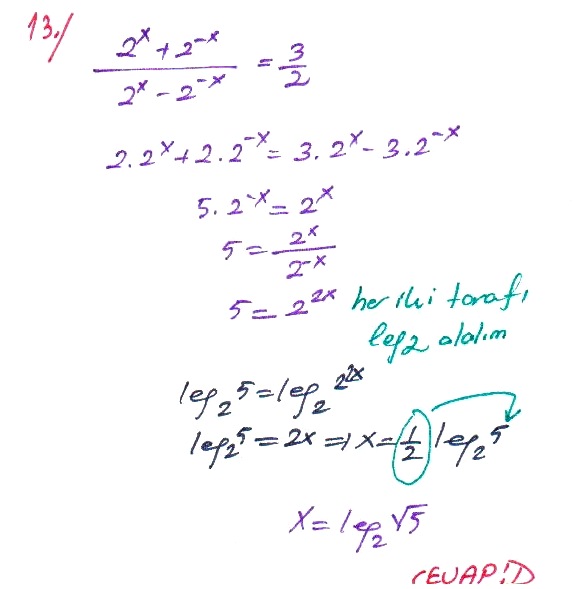 13./
(2^x + 2^-x) / (2^x - 2^-x) = 3/2
2.2^x + 2.2^-x = 3.2^x - 3.2^-x
5.2^-x = 2^x
5 = 2^x / 2^-x
5 = 2^2x her iki tarafı
log2 alalım
log₂5 = log₂2^2x
log₂5 = 2x ⇒ x = 1/2 log₂5
x = log₂√5
CEVAP:D